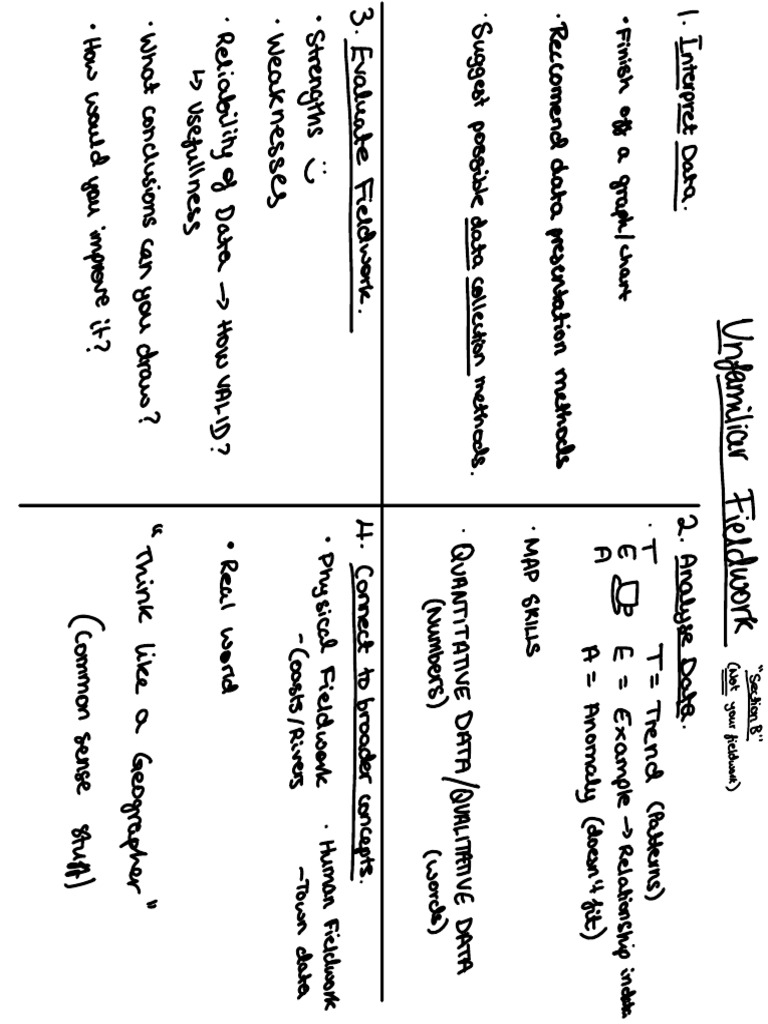 Unfamiliar Fieldwork
"Section B"
(Not your fieldwork)
1. Interpret Data.
• Finish off a graph/chart
• Reccomend data presentation methods
• Suggest possible data collection methods.
2. Analyse Data.
• T
E
A
T = Trend (Patterns)
E = Example → Relationship in data
A = Anomaly (doesn't fit)
• MAP SKILLS
• QUANTITATIVE DATA/QUALITATIVE DATA
(Numbers)
(words)
3. Evaluate Fieldwork.
• Strengths
• Weaknesses
• Reliability of Data → HOW VALID?
↳ Usefullness
• What conclusions can you draw?
• How would you improve it?
4. Connect to broader concepts.
• Physical Fieldwork
- Coasts/Rivers
• Human Fieldwork
- Town data
• Real World
"Think like a Geographer"
(Common sense stuff)